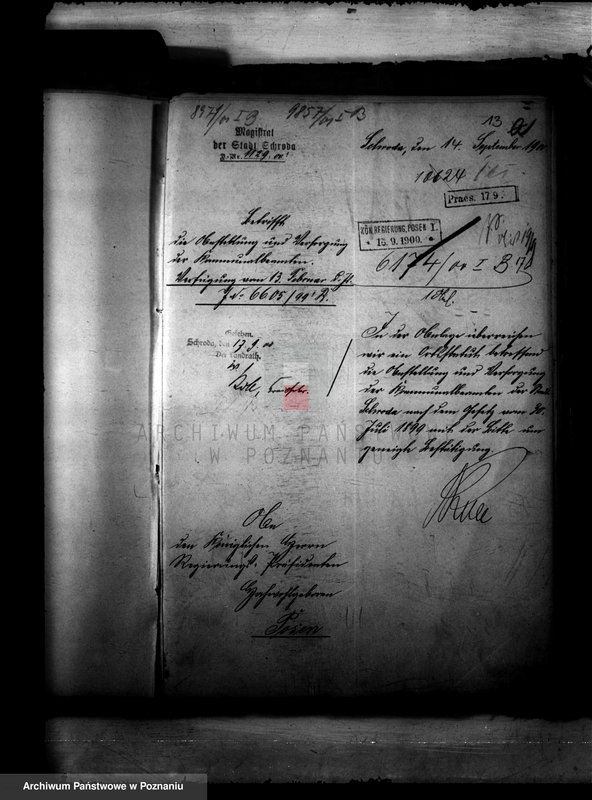 8971/00 I B 9857/00 I B
13
Magistrat
der Stadt Schroda
J.-Nr. 1129/00
Schroda, den 14. September 1900
10624
Praes. 17 9.
KÖN. REGIERUNG, POSEN I.
* 15.9.1900. *
6174/00 I B
Betrifft
die Anstellung und Versorgung
der Kommunalbeamten.
Verfügung vom 13. Februar d. Js.
J. No 6605/99 I B.
1 Anl.
Gesehen.
Schroda, den 17 9. 00
Der Landrath.
In der Anlage überreichen
wir ein Ortsstatut betreffend
die Anstellung und Versorgung
der Kommunalbeamten der Stadt
Schroda nach dem Gesetz vom 30.
Juli 1899 mit der Bitte um
geneigte Bestätigung.
An
den Königlichen Herrn
Regierungs-Präsidenten
Hochwohlgeboren
Posen
ARCHIWUM PAŃSTWOWE
W POZNANIU
Archiwum Państwowe w Poznaniu